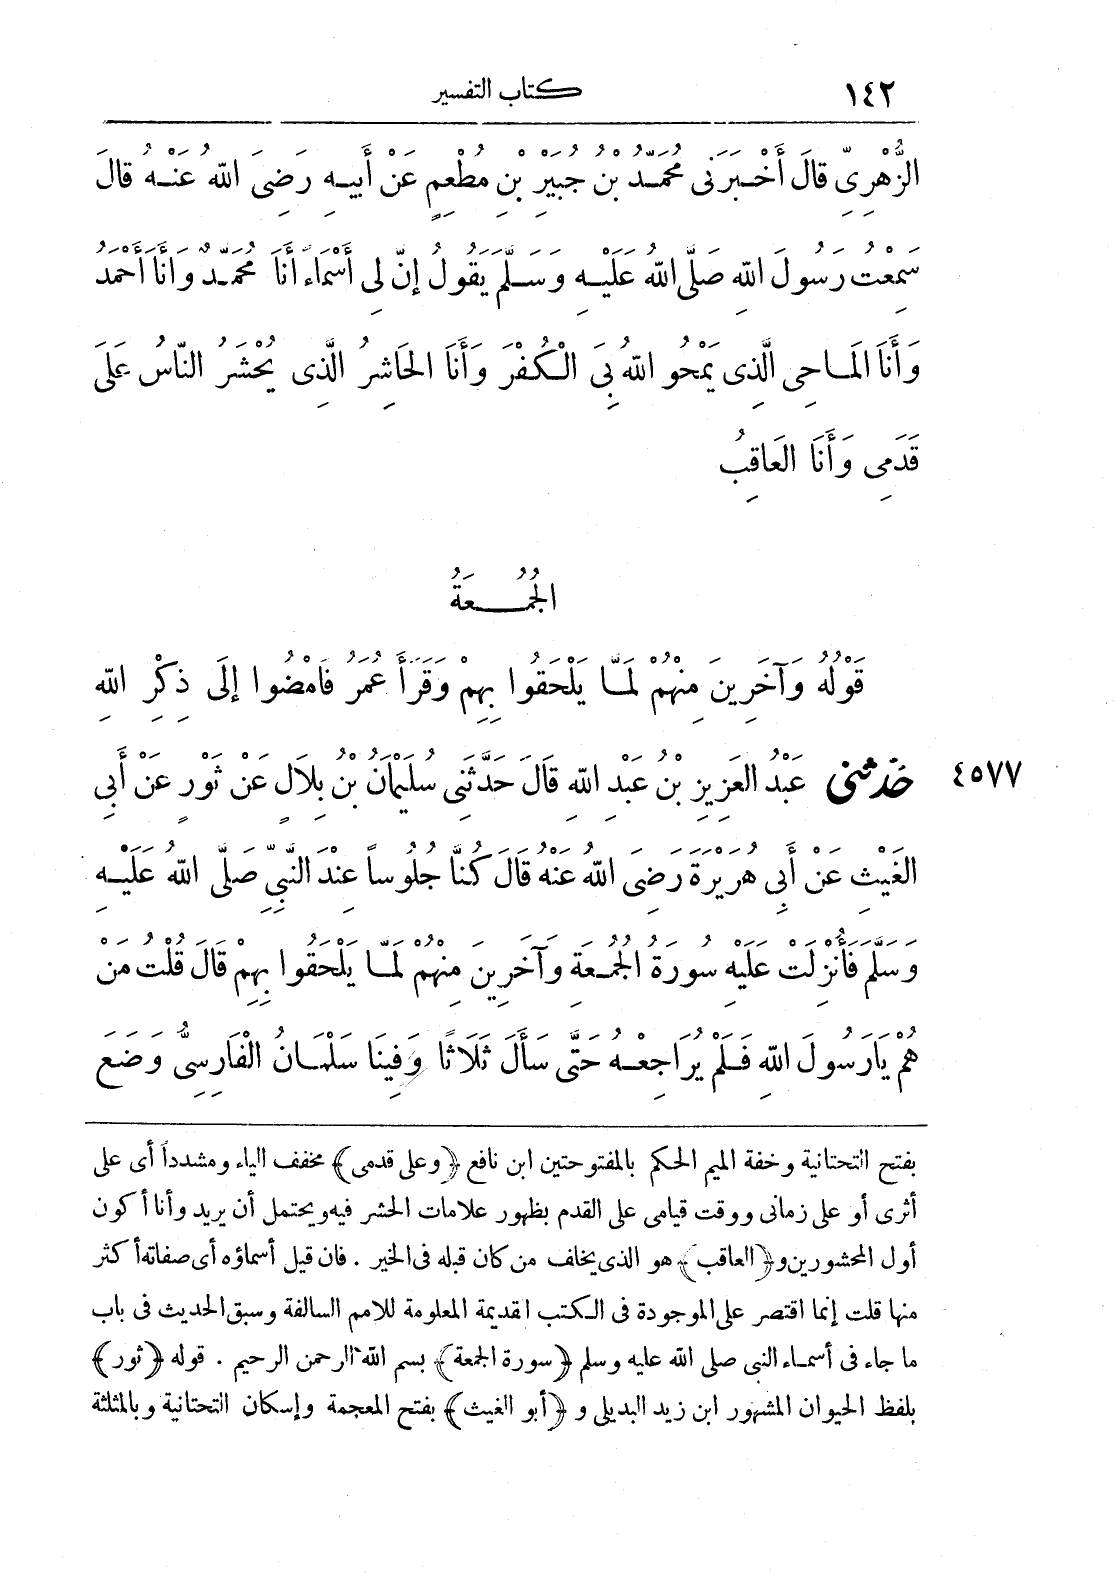 ١٤٢ كتاب التفسير
الزُّهْرِىِّ قَالَ أَخْبَرَنِى مُحَمَّدُ بْنُ جُبَيْرِ بْنِ مُطْعِمٍ عَنْ أَبِيهِ رَضِىَ اللهُ عَنْهُ قَالَ
سَمِعْتُ رَسُولَ اللهِ صَلَّى اللهُ عَلَيْهِ وَسَلَّمَ يَقُولُ إنَّ لِى أَسْمَاءً أَنَا مُحَمَّدٌ وَأَنَا أَحْمَدُ
وَأَنَا المَاحِى الَّذِى يَمْحُو اللهُ بِىَ الْكُفْرَ وَأَنَا الحَاشِرُ الَّذِى يُحْشَرُ النَّاسُ عَلَى
قَدَمِى وَأَنَا العَاقِبُ
الجُمُعَةُ
قَوْلُهُ وَآخَرِينَ مِنْهُمْ لَمَّا يَلْحَقُوا بِهِمْ وَقَرَأَ عُمَرُ فَامْضُوا إلَى ذِكْرِ اللهِ
٤٥٧٧ حَدَّثَنِى عَبْدُ العَزِيزِ بْنُ عَبْدِ اللهِ قَالَ حَدَّثَنِى سُلَيْمَانُ بْنُ بِلَالٍ عَنْ ثَوْرٍ عَنْ أَبِى
الغَيْثِ عَنْ أَبِى هُرَيْرَةَ رَضِىَ اللهُ عَنْهُ قَالَ كُنَّا جُلُوساً عِنْدَ النَّبِىِّ صَلَّى اللهُ عَلَيْهِ
وَسَلَّمَ فَأُنْزِلَتْ عَلَيْهِ سُورَةُ الجُمُعَةِ وَآخَرِينَ مِنْهُمْ لَمَّا يَلْحَقُوا بِهِمْ قَالَ قُلْتُ مَنْ
هُمْ يَارَسُولَ اللهِ فَلَمْ يُرَاجِعْهُ حَتَّى سَأَلَ ثَلَاثًا وَفِينَا سَلْمَانُ الْفَارِسِىُّ وَضَعَ
بفتح التحتانية وخفة الميم الحكم بالمفتوحتين ابن نافع ﴿وعلى قدمى﴾ مخفف الياء ومشدداً أى على
أثرى أو على زمانى ووقت قيامى على القدم بظهور علامات الحشر فيه ويحتمل أن يريد وأنا أكون
أول المحشورين و﴿العاقب﴾ هو الذى يخلف من كان قبله فى الخير . فان قيل أسماؤه أى صفاته أكثر
منها قلت إنما اقتصر على الموجودة فى الكتب القديمة المعلومة للامم السالفة وسبق الحديث فى باب
ما جاء فى أسماء النبى صلى الله عليه وسلم ﴿سورة الجمعة﴾ بسم الله الرحمن الرحيم . قوله ﴿ثور﴾
بلفظ الحيوان المشهور ابن زيد البديلى و ﴿أبو الغيث﴾ بفتح المعجمة وإسكان التحتانية وبالمثلثة